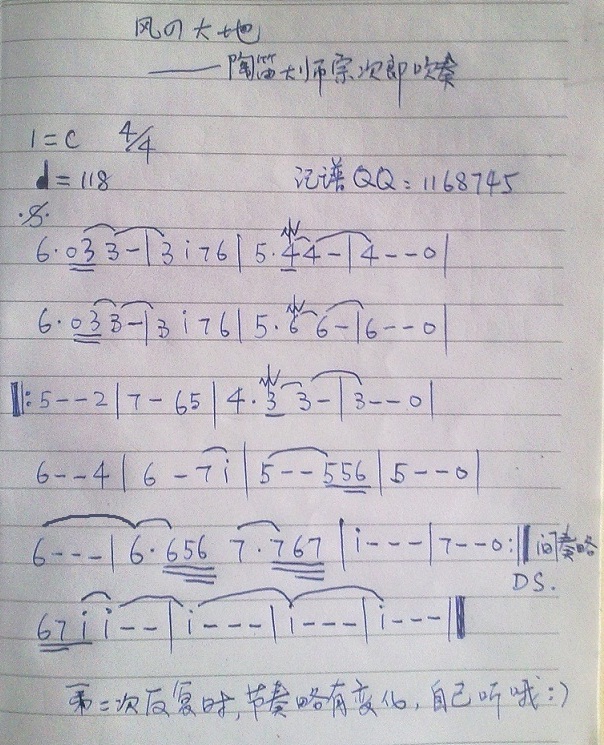 风の大地
——陶笛大师宗次郎吹奏
1=C 4/4
♩=118 记谱QQ:1168745
𝄋
6·033-|3i76|5·44-|4--0|
6·033-|3i76|5·66-|6--0|
‖:5--2|7-65|4·33-|3--0|
6--4|6-7i|5--556|5--0|
6---|6·656 7·767|i---|7--0:‖间奏略
DS.
67ii--|i---|i---|i---‖
第二次反复时,节奏略有变化,自己听哦:)